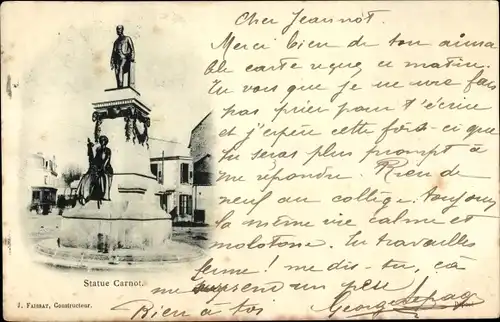 Cher Jeannot.
Merci bien de ton aimable carte reçue ce matin.
Tu vois que je ne me fais
pas prier pour t'écrire
et j'espère cette fois-ci que
tu seras plus prompt à
me répondre. Rien de
neuf au collège. toujours
la même vie calme et
molotone. Tu travailles
ferme! me dis-tu, ça
me surprend un peu
Bien à toi Georges Lepage
Statue Carnot.
J. FAISSAT, Constructeur.